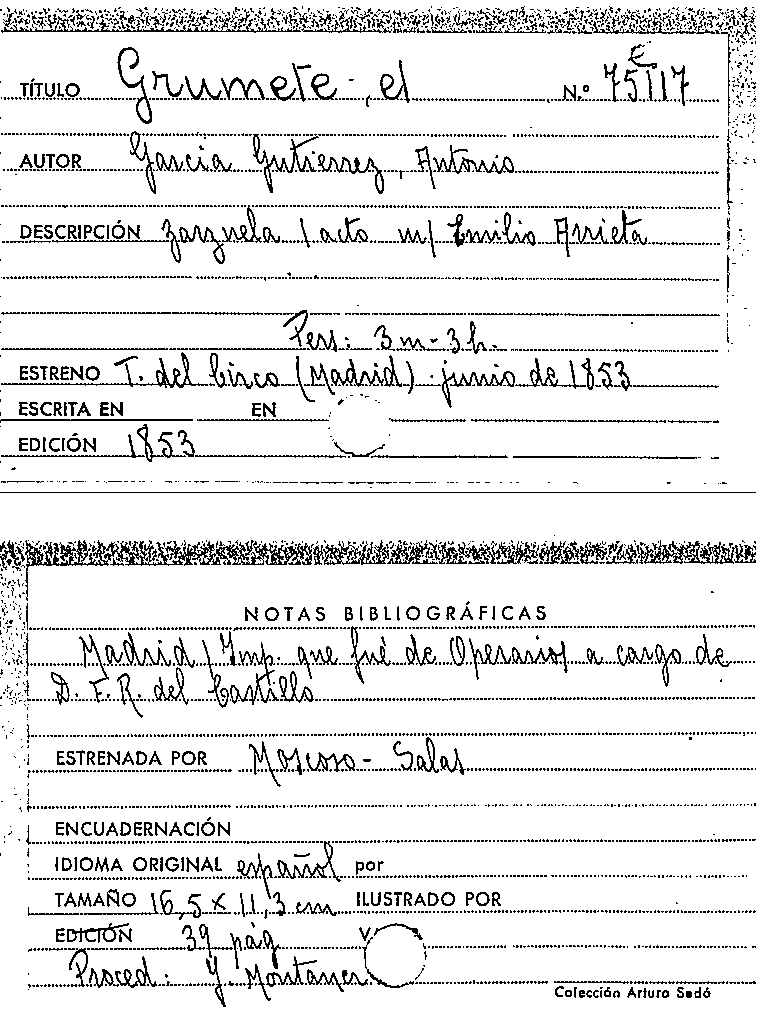 TÍTULO Grumete-, el N.º 75117
E
AUTOR García Gutiérrez, Antonio
DESCRIPCIÓN zarzuela 1 acto m/ Emilio Arrieta
Pers: 3m-3h.
ESTRENO T. del Circo (Madrid). junio de 1853
ESCRITA EN EN
EDICIÓN 1853
NOTAS BIBLIOGRÁFICAS
Madrid/Imp. que fué de Operarios a cargo de
D. F. R. del Castillo
ESTRENADA POR Moscoso- Salas
ENCUADERNACIÓN
IDIOMA ORIGINAL español por
TAMAÑO 16,5 x 11,3 cm ILUSTRADO POR
EDICIÓN 39 pág
Proced: Y. Montaner
Colección Arturo Sedó